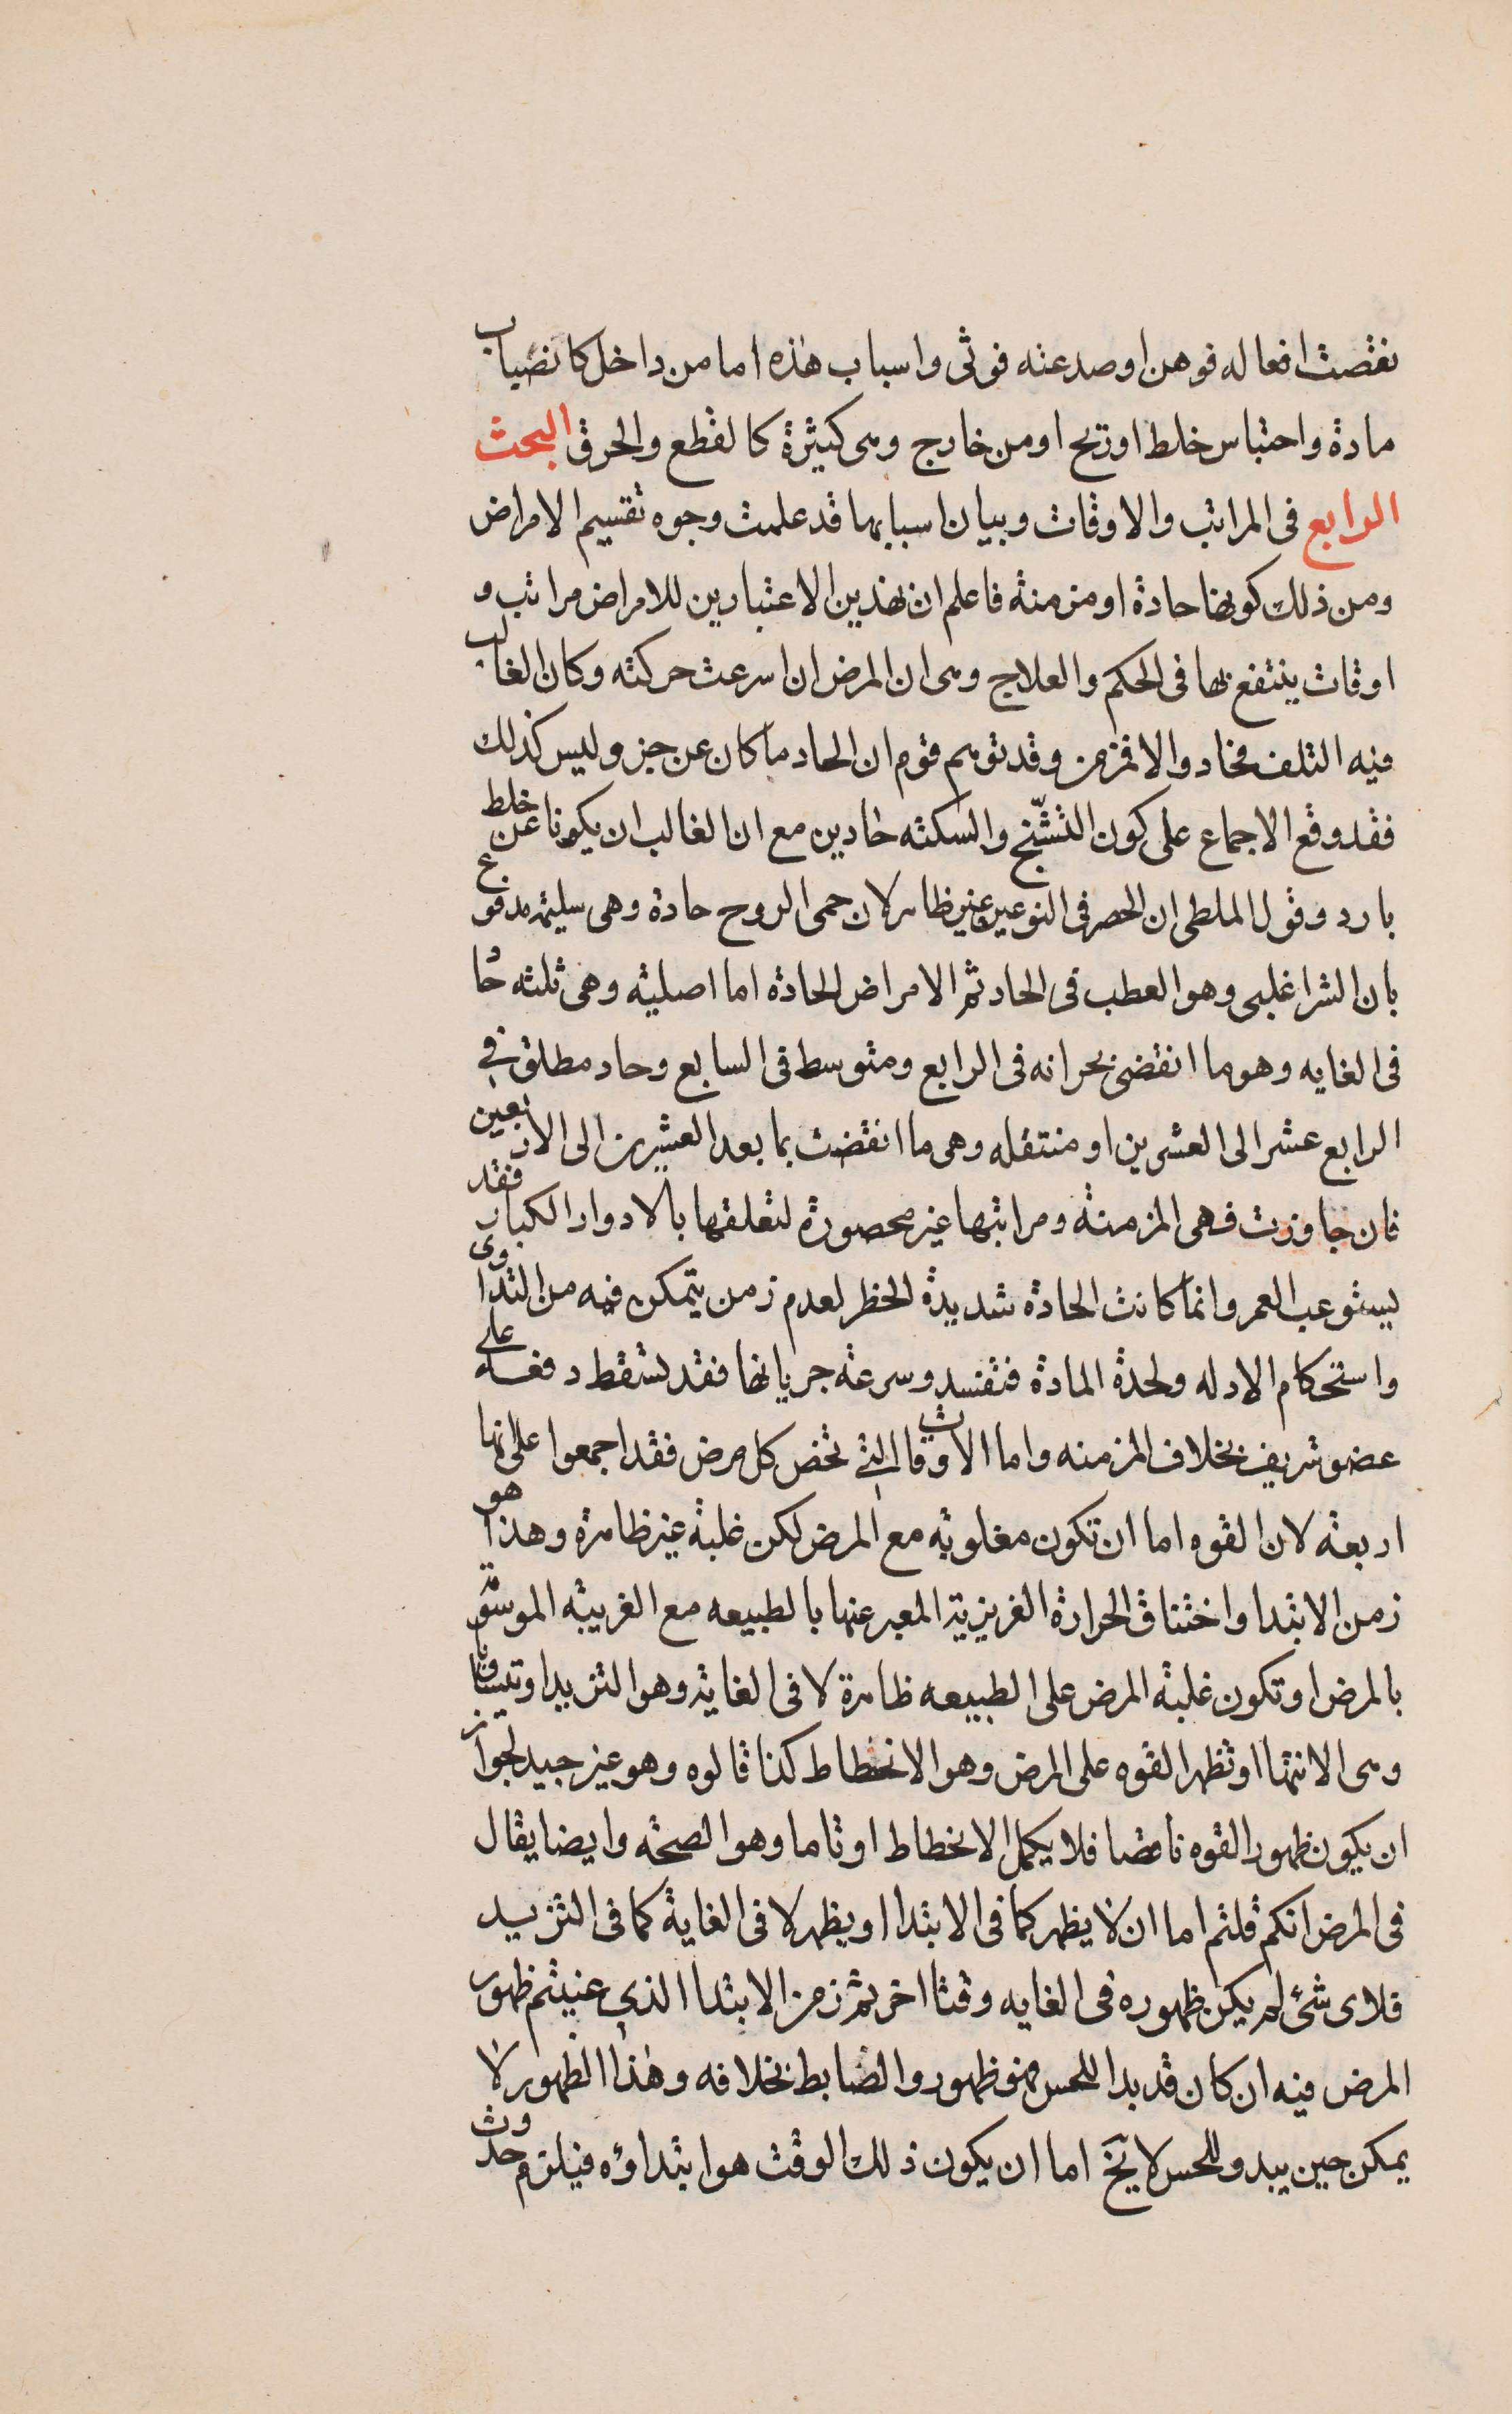 نقصت افعاله فوهن اوصد عنه فوثى واسباب هذه امامن داخل كانضباب
مادة واحتباس خلط اوريح اومن خارج وهى كثيرة كالقطع والحرق البحث
الرابع فى المراتب والاوقات وبيان اسبابها قد علمت وجوه تقسيم الامراض
ومن ذلك كونها حادة اومزمنة فاعلم ان بهذين الاعتبارين للامراض مراتب و
اوقات ينتفع بها فى الحكم والعلاج وهى ان المرض ان اسرعت حركته وكان الغالب
فيه التلف فحاد والا فمزمن وقد توهم قوم ان الحاد ما كان عن حر وليس كذلك
فقد وقع الاجماع على كون التشنج والسكته حادين مع ان الغالب ان يكونا عن خلط
بارد وقول الملطى ان الحصر فى النوعين غير ظاهر لان حمى الروح حادة وهى سليمة مدفوع
بان الشر اغلبى وهو العطب فى الحاد ثم الامراض الحادة اما اصلية وهى ثلثه حاد
فى الغايه وهو ما انقضى بحرانه فى الرابع ومتوسط فى السابع وحاد مطلق فى
الرابع عشر الى العشرين او منتقله وهى ما انقضت بما بعد العشرين الى الاربعين
فان جاوزت فهى المزمنة ومراتبها غير محصورة لتعلقها بالادوار الكبار فقد
يستوعب العمر وانما كانت الحادة شديدة الخطر لعدم زمن يتمكن فيه من التداوى
واستحكام الادله ولحدة المادة فتفسد وسرعة جريانها فقد تسقط دفعة على
عضو شريف بخلاف المزمنه واما الاوقات التى تخص كل مرض فقد اجمعوا على انها
اربعة لان القوه اما ان تكون مغلوبة مع المرض لكن غلبة غير ظاهرة وهذا هو
زمن الابتدا واختناق الحرارة الغريزية المعبر عنها بالطبيعه مع الغريبة الموسومة
بالمرض اوتكون غلبة المرض على الطبيعه ظاهرة لا فى الغاية وهو التزيد اوتتساويا
وهى الانتها اوتظهر القوه على المرض وهو الانحطاط كذا قالوه وهو غير جيد لجواز
ان يكون ظهور القوه ناقصا فلا يكمل الانحطاط اوتاما وهو الصحة وايضا يقال
فى المرض انكم قلتم اما ان لا يظهر كما فى الابتدا اويظهر لا فى الغاية كما فى التزيد
فلاى شئ لم يكن ظهوره فى الغايه وقتا اخر ثم زمن الابتدا الذى عنيتم ظهور
المرض فيه ان كان قد بدا للحس فهو ظهور والضابط بخلافه وهذا الظهور لا
يمكن حين يبدو للحس لا يخ اما ان يكون ذلك الوقت هو ابتداؤه فيلزم حدوث